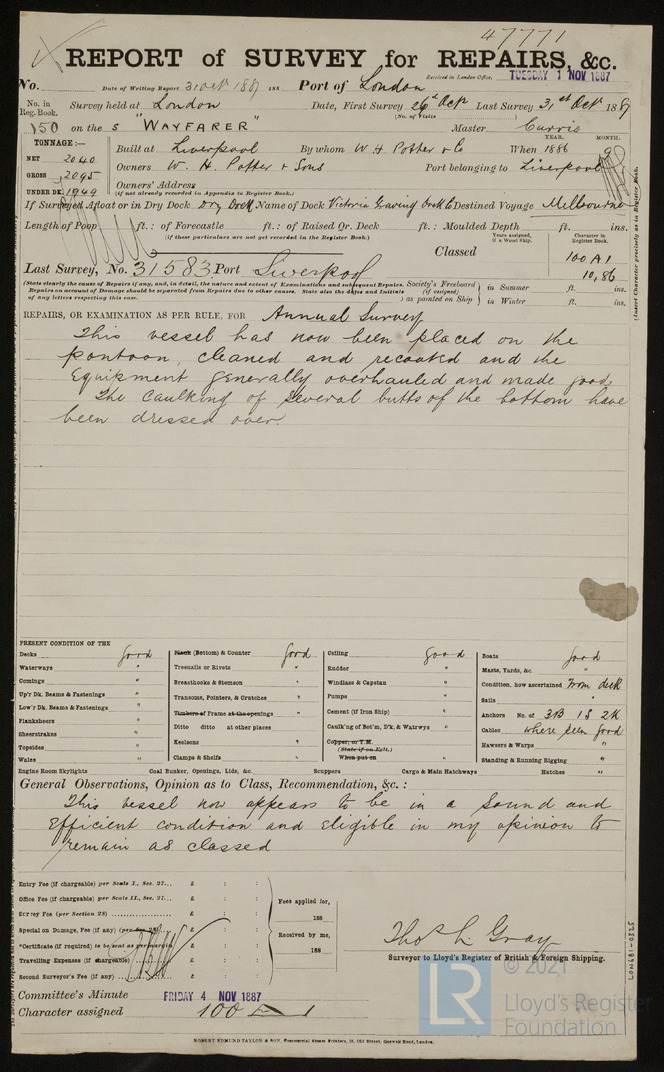 47771
REPORT of SURVEY for REPAIRS, &c.
No. Date of Writing Report 31 Oct 1887 188 Port of London Received in London Office, TUESDAY 1 NOV 1887
No. in Reg. Book. Survey held at London Date, First Survey 26th Oct Last Survey 31st Oct 1887
(No. of Visits )
150 on the S "WAYFARER" Master Currie
TONNAGE:— YEAR. MONTH.
NET 2040 Built at Liverpool By whom W H Potter & Co When 1886 9
GROSS 2095 Owners W. H. Potter & Sons Port belonging to Liverpool
UNDER DK. 1949 Owners' Address
(if not already recorded in Appendix to Register Book.)
If Surveyed Afloat or in Dry Dock Dry Dock Name of Dock Victoria Graving Dock Co Destined Voyage Melbourne
Length of Poop ft.: of Forecastle ft.: of Raised Qr. Deck ft.: Moulded Depth ft. ins.
(if these particulars are not yet recorded in the Register Book.) Years assigned, if a Wood Ship. Character in Register Book.
Classed 100 A1
10,86
(Insert Character precisely as in Register Book.
Last Survey, No. 31583 Port Liverpool
(State clearly the cause of Repairs if any, and, in detail, the nature and extent of Examinations and subsequent Repairs. Repairs on account of Damage should be separated from Repairs due to other causes. State also the dates and Initials of any letters respecting this case.
Society's Freeboard (if assigned) as painted on Ship in Summer ft. ins.
in Winter ft. ins.
REPAIRS, OR EXAMINATION AS PER RULE, FOR Annual Survey
This vessel has now been placed on the
pontoon, cleaned and recoated and the
Equipment generally overhauled and made good.
The caulking of several butts of the bottom have
been dressed over.
PRESENT CONDITION OF THE
Decks good
Waterways "
Comings "
Up'r Dk. Beams & Fastenings "
Low'r Dk. Beams & Fastenings "
Planksheers "
Sheerstrakes "
Topsides "
Wales "
Plank (Bottom) & Counter good
Treenails or Rivets "
Breasthooks & Stemson "
Transoms, Pointers, & Crutches "
Timbers of Frame at the openings "
Ditto ditto at other places "
Keelsons "
Clamps & Shelfs "
Ceiling good
Rudder "
Windlass & Capstan "
Pumps "
Cement (if Iron Ship) "
Caulk'g of Bot'm, D'k, & Watrwys "
Copper, or Y.M.
(State if on Felt.)
When put on
Boats good
Masts, Yards, &c. "
Condition, how ascertained From deck
Sails "
Anchors No. of 3B 1S 2K
Cables where seen good
Hawsers & Warps "
Standing & Running Rigging "
Engine Room Skylights Coal Bunker, Openings, Lids, &c. Scuppers Cargo & Main Hatchways Hatches "
General Observations, Opinion as to Class, Recommendation, &c.:
This vessel now appears to be in a sound and
Efficient condition and eligible in my opinion to
remain as classed
Entry Fee (if chargeable) per Scale I., Sec. 27... £ : :
Office Fee (if chargeable) per Scale II., Sec. 27... £ : :
Survey Fee (per Section 28) £ : :
Special on Damage, Fee (if any) (per Sec. 28) £ : :
*Certificate (if required) to be sent as per margin £ : :
Travelling Expenses (if chargeable) £ : :
Second Surveyor's Fee (if any) £ : :
Fees applied for,
188
Received by me,
188
Thos L Gray
Surveyor to Lloyd's Register of British & Foreign Shipping.
Committee's Minute FRIDAY 4 NOV 1887
Character assigned 100 A 1
ROBERT EDMUND TAYLOR & SON, Commercial Steam Printers, 19, Old Street, Goswell Road, London.
LON681-0325
© 2021
LR
Lloyd's Register
Foundation